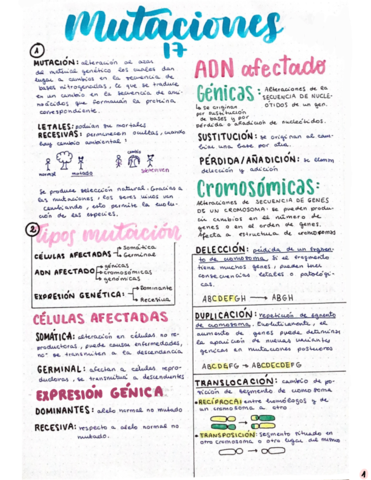 Mutaciones
17
1
MUTACIÓN: alteración al azar
del material genético los cuales dan
lugar a cambios en la secuencia de
bases nitrogenadas, lo que se traduce
en un cambio en la secuencia de ami-
noácidos que formarán la proteína
correspondiente.
LETALES: podrían ser mortales
RECESIVAS: permanecen ocultas, cuando
hay cambio ambiental!
normal mutado
cambio
sobreviven
Se produce selección natural. Gracias a
las mutaciones, los seres vivos van
cambiando, esto permite la evolu-
ción de las especies.
2
Tipos mutación
CÉLULAS AFECTADAS
Somática
Germinal
ADN AFECTADO
génicas
cromosómicas
genómicas
EXPRESIÓN GENÉTICA:
Dominante
Recesiva
CÉLULAS AFECTADAS
SOMÁTICA: alteración en células no re-
productoras, puede causar enfermedades,
no se transmiten a la descendencia
GERMINAL: afectan a células repro-
ductoras, se transmiten a descendientes
EXPRESIÓN GÉNICA
DOMINANTES: alelo normal no mutado
RECESIVA: respecto a alelo normal no
mutado.
ADN afectado
Génicas: Alteraciones de la
SECUENCIA DE NUCLE-
ÓTIDOS de un gen.
se originan
por sustitución
de bases y por
pérdida o añadidura de nucleótidos.
SUSTITUCIÓN: se originan al cam-
biar una base por otra.
PÉRDIDA/AÑADICIÓN: se llaman
deleción y adición
Cromosómicas:
Alteraciones de SECUENCIA DE GENES
DE UN CROMOSOMA: se pueden produ-
cir cambios en el número de
genes o en el orden de genes.
Afecta a estructura de cromosomas
DELECCIÓN: pérdida de un fragmen-
to de cromosoma. Si el fragmento
tiene muchos genes, pueden tener
consecuencias letales o patológi-
cas.
ABCDEFGH → ABGH
DUPLICACIÓN: repetición de segmento
de cromosoma. Evolutivamente, el
aumento de genes puede determinar
la aparición de nuevas variantes
génicas en mutaciones posteriores
ABCDEFG → ABCDECDEFG
TRANSLOCACIÓN: cambio de po-
sición de segmento de cromosoma
•RECÍPROCA: entre homólogos y de
un cromosoma a otro
•TRANSPOSICIÓN: segmento situado en
otro cromosoma o otro lugar del mismo
1